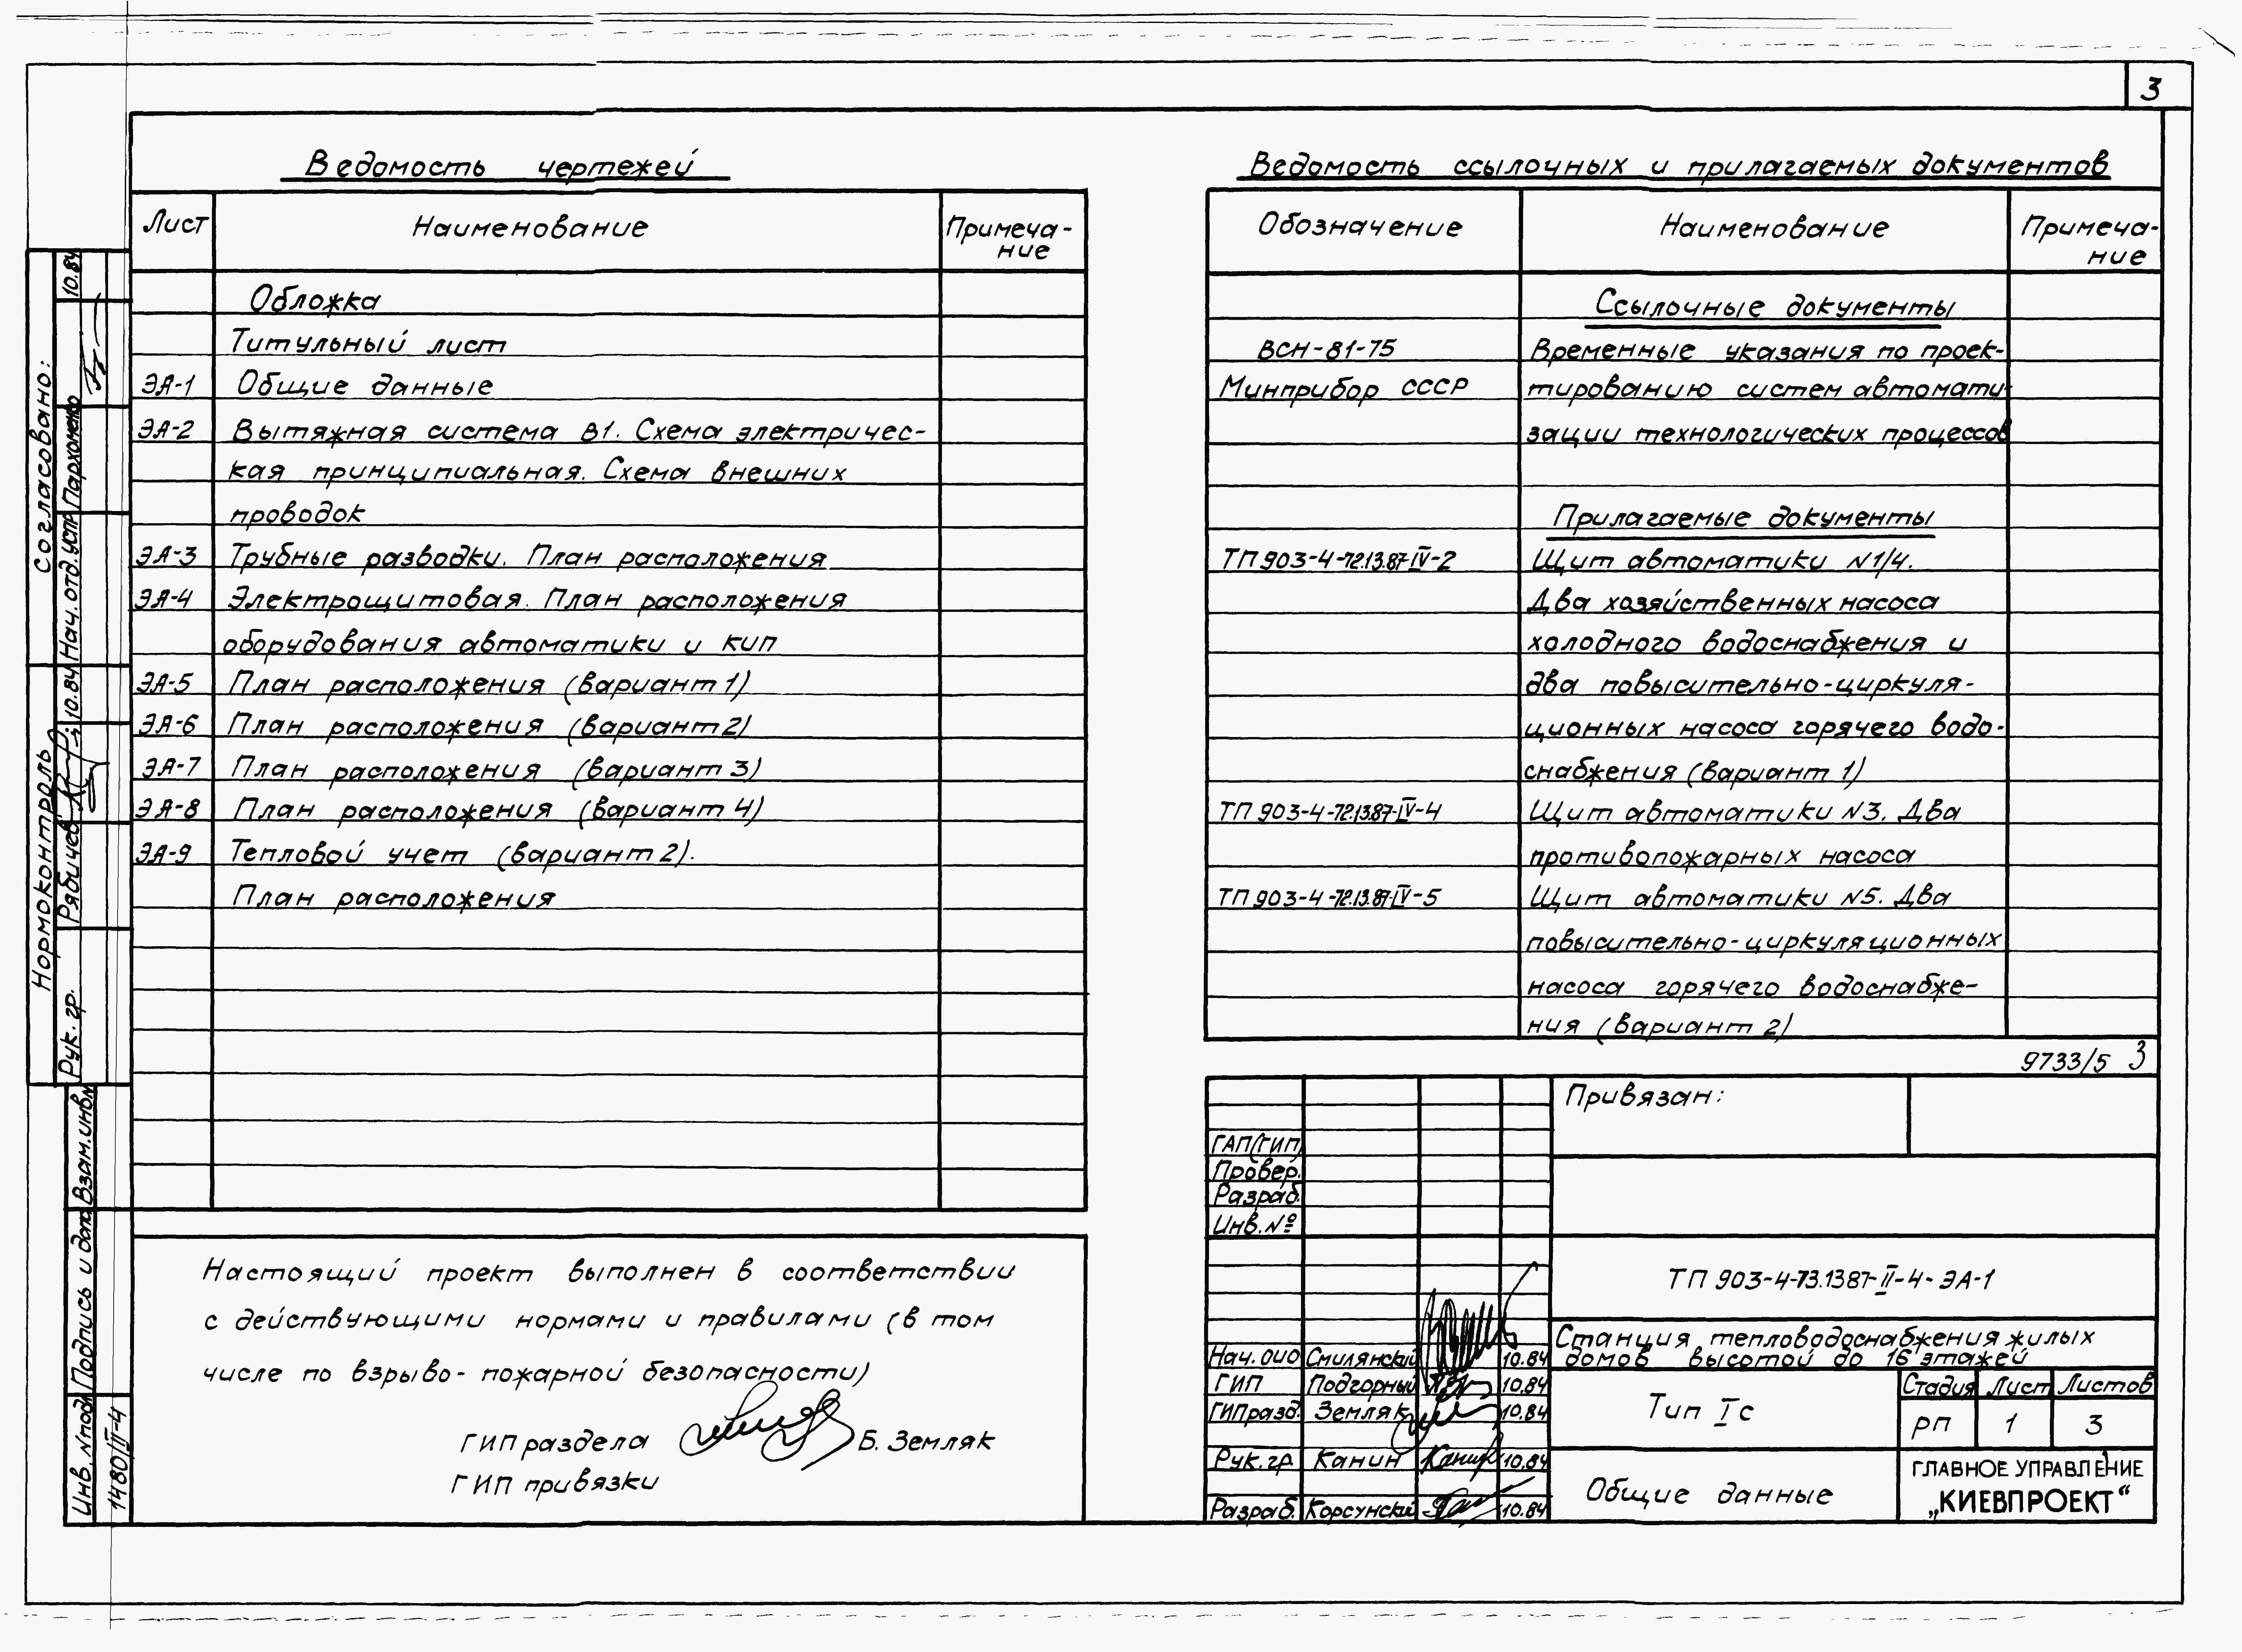 3
Ведомость чертежей
Лист Наименование Примеча-
ние
Обложка
Титульный лист
ЭА-1 Общие данные
ЭА-2 Вытяжная система В1. Схема электричес-
кая принципиальная. Схема внешних
проводок
ЭА-3 Трубные разводки. План расположения
ЭА-4 Электрощитовая. План расположения
оборудования автоматики и КИП
ЭА-5 План расположения (вариант 1)
ЭА-6 План расположения (вариант 2)
ЭА-7 План расположения (вариант 3)
ЭА-8 План расположения (вариант 4)
ЭА-9 Тепловой учет (вариант 2).
План расположения
Настоящий проект выполнен в соответствии
с действующими нормами и правилами (в том
числе по взрыво- пожарной безопасности)
ГИП раздела Б. Земляк
ГИП привязки
Ведомость ссылочных и прилагаемых документов
Обозначение Наименование Примеча-
ние
Ссылочные документы
ВСН-81-75 Временные указания по проек-
Минприбор СССР тированию систем автомати-
зации технологических процессов
Прилагаемые документы
ТП 903-4-72.13.87-IV-2 Щит автоматики N1/4.
Два хозяйственных насоса
холодного водоснабжения и
два повысительно-циркуля-
ционных насоса горячего водо-
снабжения (вариант 1)
ТП 903-4-72.13.87-IV-4 Щит автоматики N3. Два
противопожарных насоса
ТП 903-4-72.13.87-IV-5 Щит автоматики N5. Два
повысительно-циркуляционных
насоса горячего водоснабже-
ния (вариант 2)
9733/5 3
Привязан:
ГАП(ГИП)
Провер.
Разраб.
Инв. №
ТП 903-4-73.1387-II-4-ЭА-1
Станция тепловодоснабжения жилых
домов высотой до 16 этажей
Нач. ОИО Смилянский 10.84
ГИП Подгорный 10.84
ГИП разд. Земляк 10.84
Рук. гр. Канин Канин 10.84
Разраб. Корсунский 10.84
Тип Iс
Стадия Лист Листов
РП 1 3
Общие данные
ГЛАВНОЕ УПРАВЛЕНИЕ
„КИЕВПРОЕКТ“
Согласовано:
Нач. отд. УСТР Пархоменко 10.84
Нормоконтроль
Рук. гр. Рябичев 10.84
Взам. инв N
Подпись и дата
Инв. N подл
1480/II-4